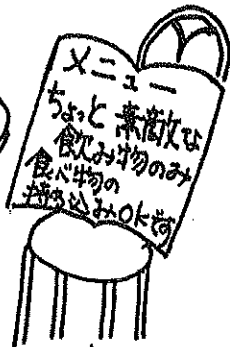 メニュー
ちょっと素敵な
飲み物のみ
食べ物の
持ち込みOKです